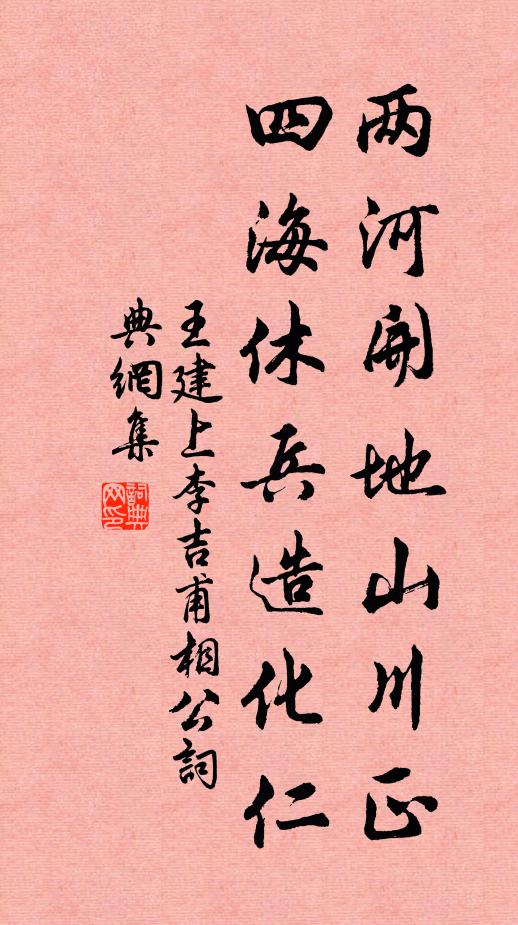 两河开地山川正
四海休兵造化仁
王建上李吉甫相公詞
典網集
詞典
网印